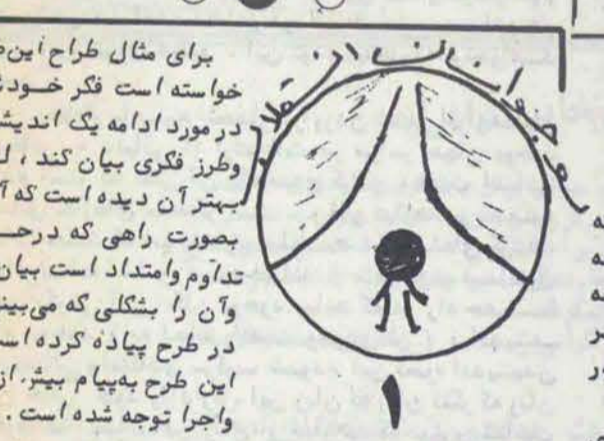 برای مثال طراح این
خواسته است فکر خود
در مورد ادامه یک اندیش
وطرز فکری بیان کند ، ل
بهتر آن دیده است که آ
بصورت راهی که درحـ
تداوم وامتداد است بیان
وآن را بشکلی که می‌بین
در طرح پیاده کرده اس
این طرح به‌پیام بیشتر از
واجرا توجه شده است .
۱
ه
ه
ه
ر
ور